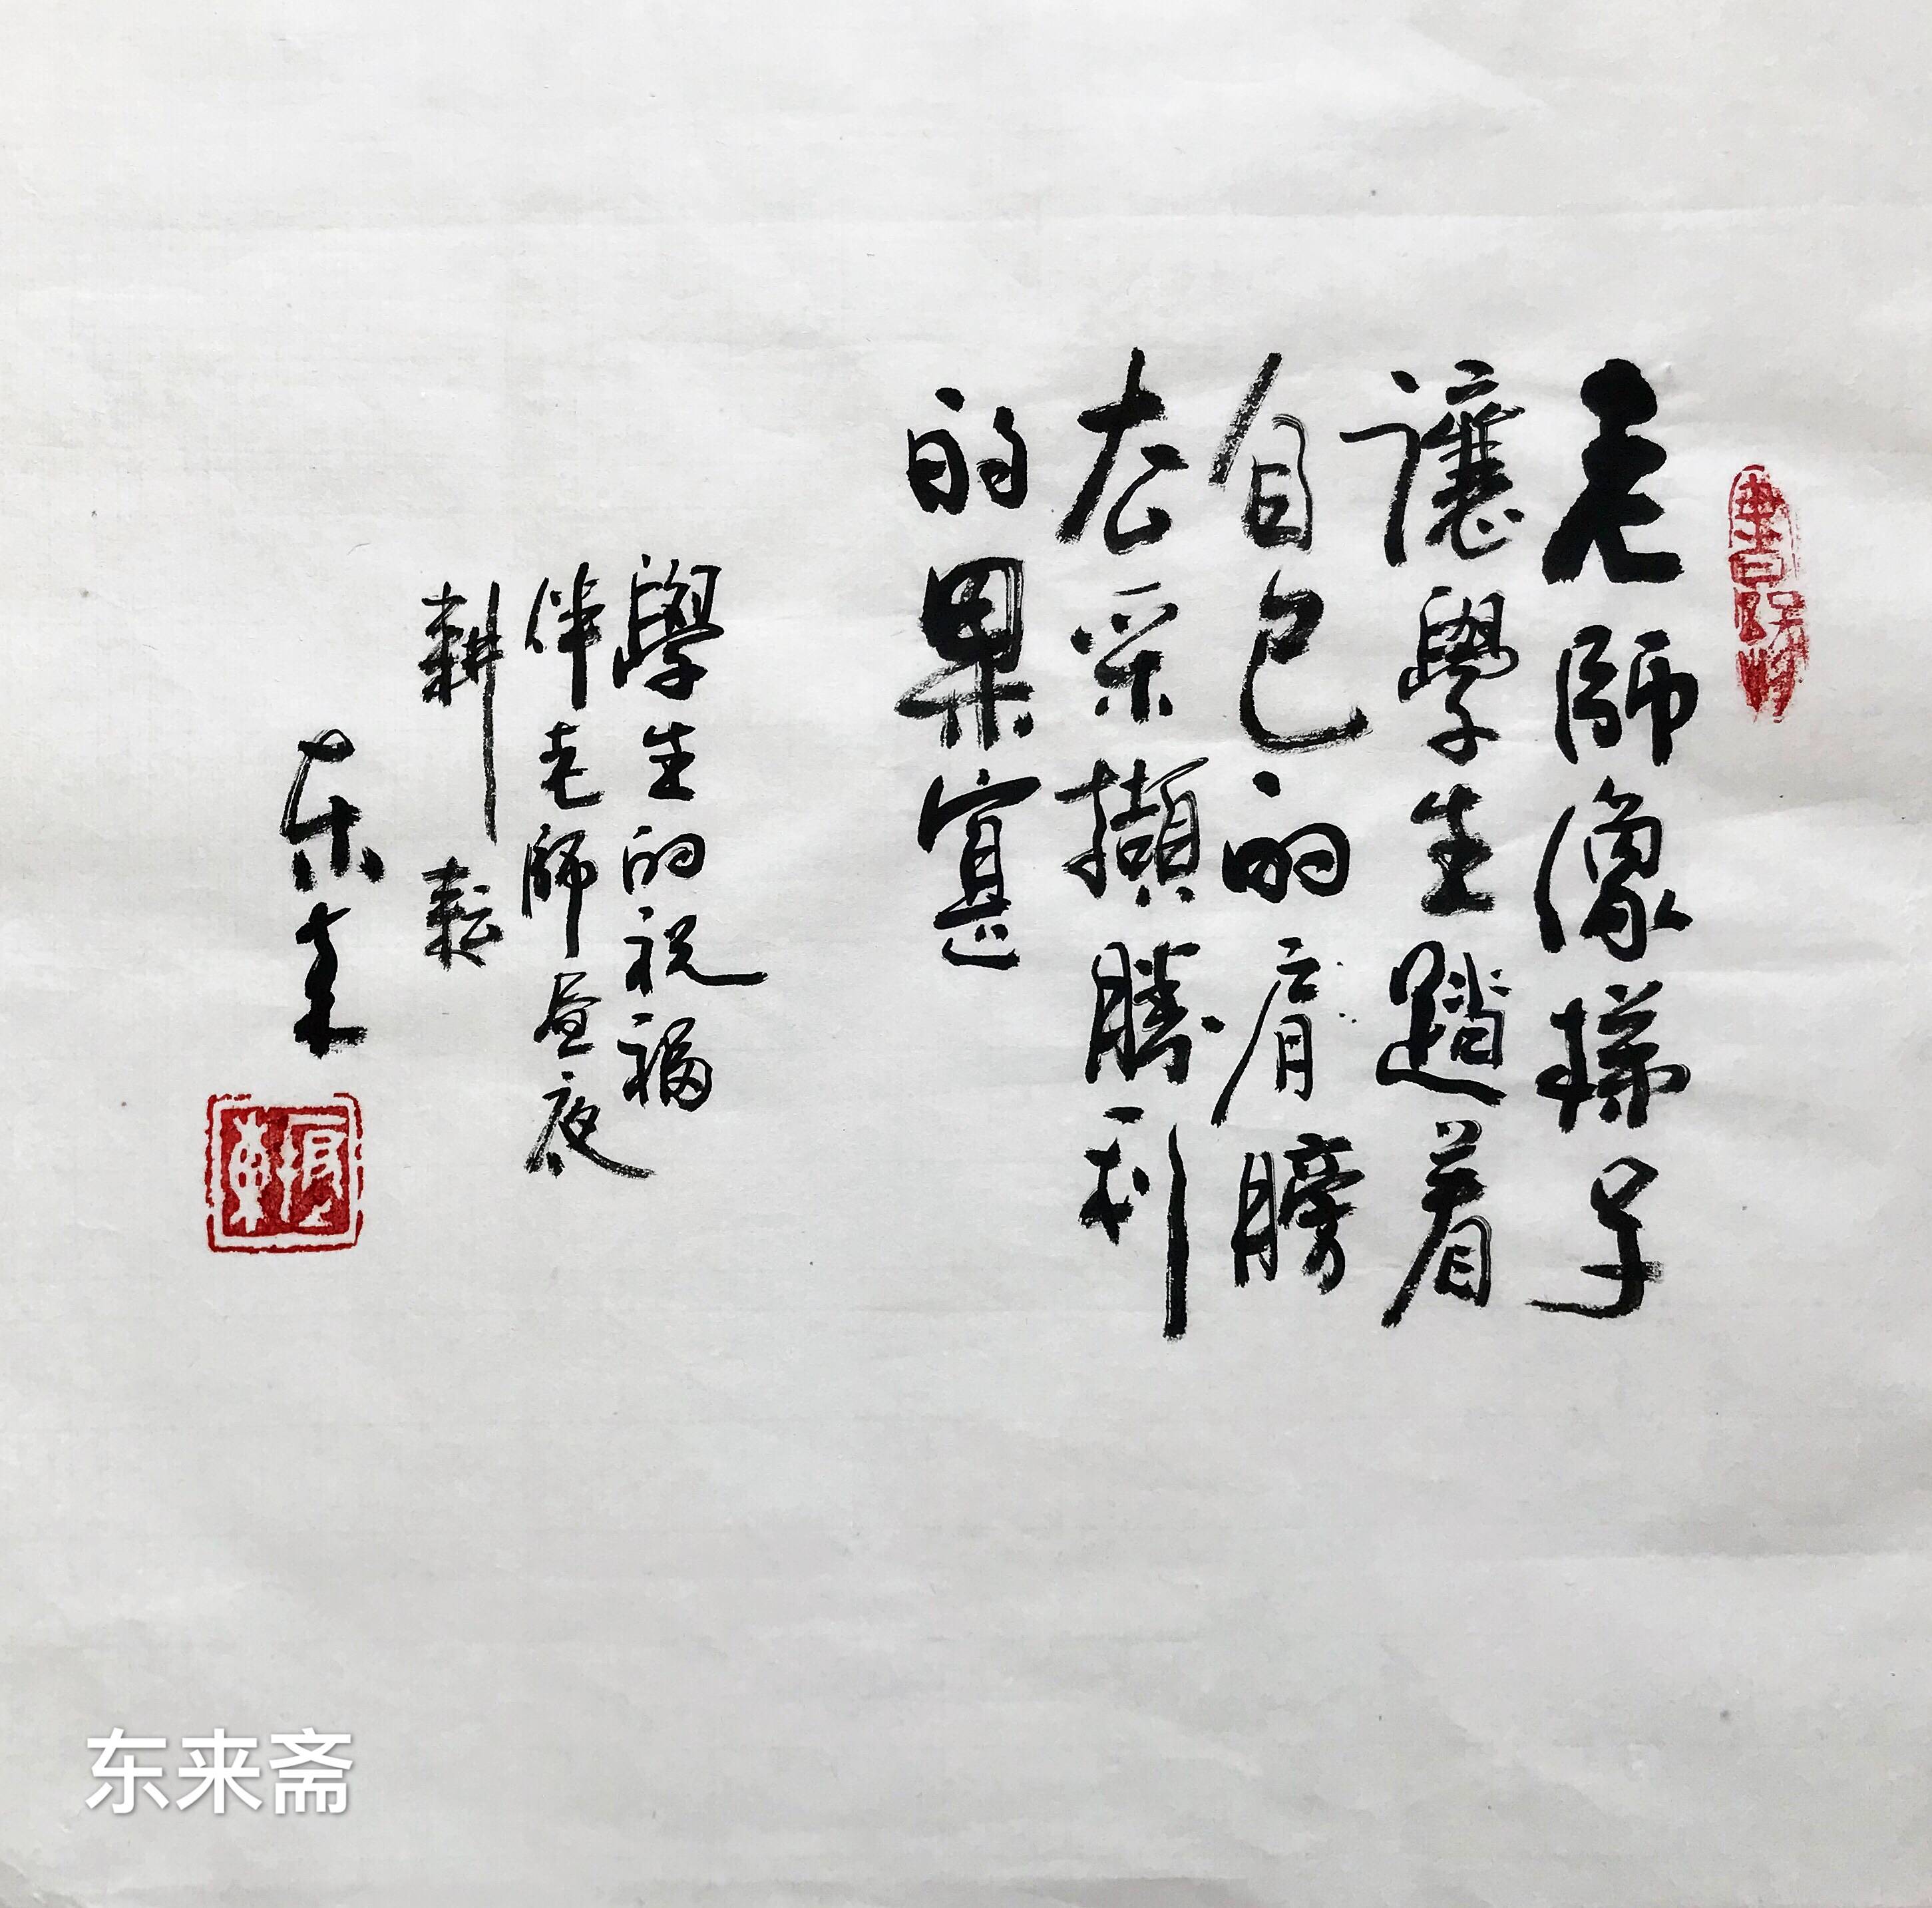 老師像梯子
讓學生踏着
自己的肩膀
去采擷勝利
的果實
學生的祝福
伴老師昼夜
耕耘
东来
东来斋